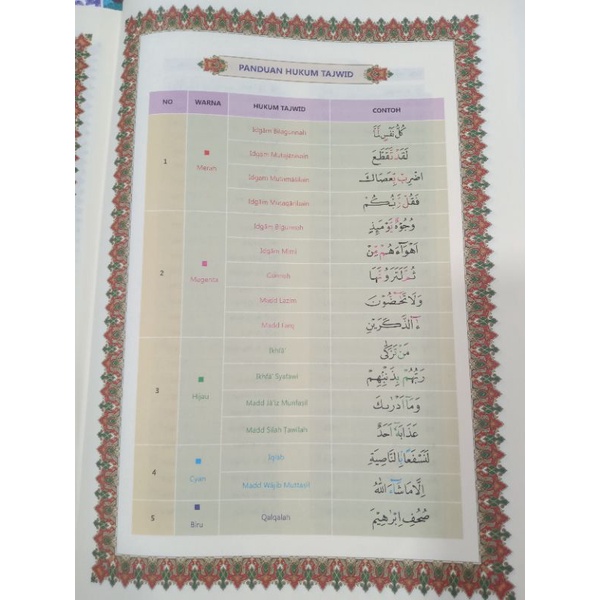 PANDUAN HUKUM TAJWID
NO WARNA HUKUM TAJWID CONTOH
1 Merah
Idgām Bilagunnah كُلُّ نَفْسٍ لَّمَّا
Idgām Mutajānisain لَقَدْ تَّقَطَّعَ
Idgām Mutamāṡilain اضْرِبْ بِّعَصَاكَ
Idgām Mutaqāribain فَقُلْ رَّبُّكُمْ
2 Magenta
Idgām Bigunnah وُجُوْهٌ يَّوْمَىِٕذٍ
Idgām Mimi اَهْوَاۤءَهُمْ مِّنْ
Gunnah ثُمَّ لَتَرَوُنَّهَا
Madd Lāzim وَلَا تَحٰۤضُّوْنَ
Madd Farq ءٰۤالذَّكَرَيْنِ
3 Hijau
Ikhfā' مَنْ تَزَكّٰى
Ikhfā' Syafawī رَبُّهُمْ بِذَنْۢبِهِمْ
Madd Jā'iz Munfaṣil وَمَآ اَدْرٰىكَ
Madd Ṣilah Ṭawīlah عَذَابَهٗٓ اَحَدٌ
4 Cyan
Iqlāb لَنَسْفَعًاۢ بِالنَّاصِيَةِ
Madd Wājib Muttaṣil اِلَّا مَا شَاۤءَ اللّٰهُ
5 Biru
Qalqalah صُحُفِ اِبْرٰهِيْمَ